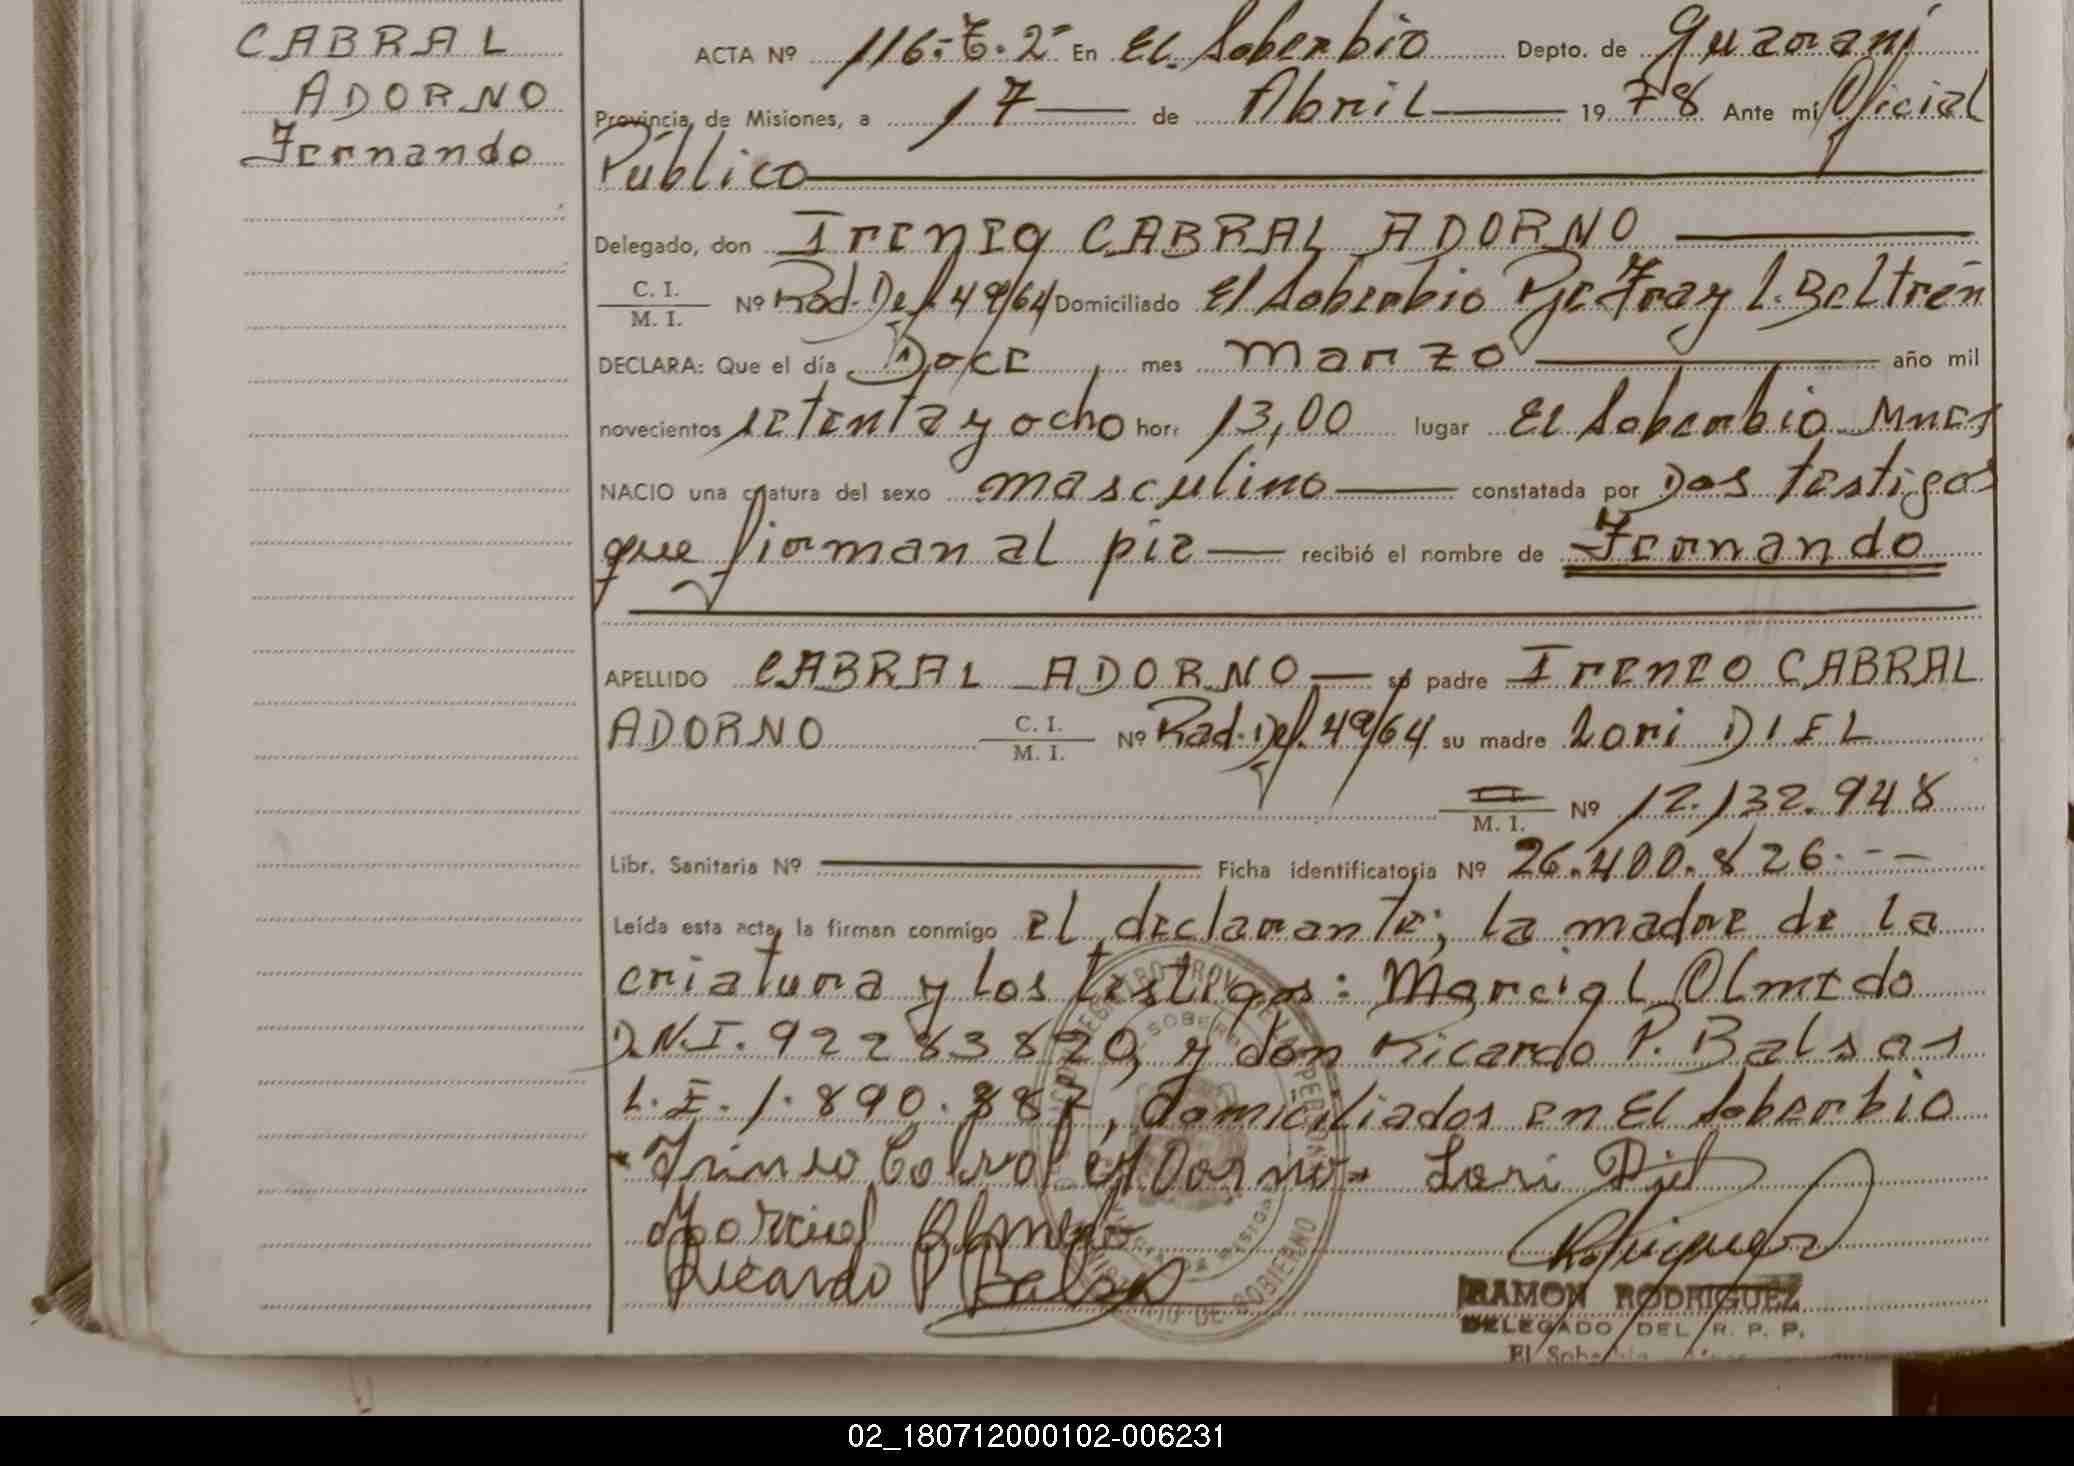 CABRAL
ADORNO
Fernando
ACTA Nº 116.-T.2º En El Soberbio Depto. de Guaraní
Provincia de Misiones, a 17 de Abril 1978 Ante mí Oficial
Público
Delegado, don Ireneo CABRAL ADORNO
C. I.
M. I. Nº Rad. Def. 49/64 Domiciliado El Soberbio Pje Fray L. Beltrán
DECLARA: Que el día Doce mes marzo año mil
novecientos setenta y ocho hora 13,00 lugar El Soberbio Mnes
NACIO una criatura del sexo masculino constatada por Dos testigos
que firman al pie recibió el nombre de Fernando
APELLIDO CABRAL ADORNO su padre Ireneo CABRAL
ADORNO C. I.
M. I. Nº Rad. Def. 49/64 su madre Lori DIEL
M. I. Nº 12.132.948
Libr. Sanitaria Nº Ficha identificatoria Nº 26.400.826.--
Leída esta acta, la firman conmigo el declarante; la madre de la
criatura y los testigos: Marcial Olmedo
D.N.I. 92283820, y don Ricardo P. Balsas
L.E. 1.890.887, domiciliados en El Soberbio
Irineo Cabral Adorno Lori Diel
Marcial Olmedo
Ricardo P Balsas
RAMON RODRIGUEZ
DELEGADO DEL R. P. P.
El Soberbio
MINISTERIO DE GOBIERNO
02_180712000102-006231